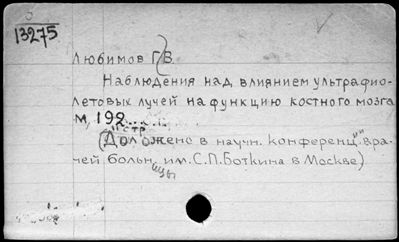 13275
Любимов Г.В.
Наблюдения над влиянием ультрафио-
летовых лучей на функцию костного мозга
М, 192
стр.
(Доложено в научн. конференц. вра-
чей больн. им. С.П.Боткина в Москве)
ицы